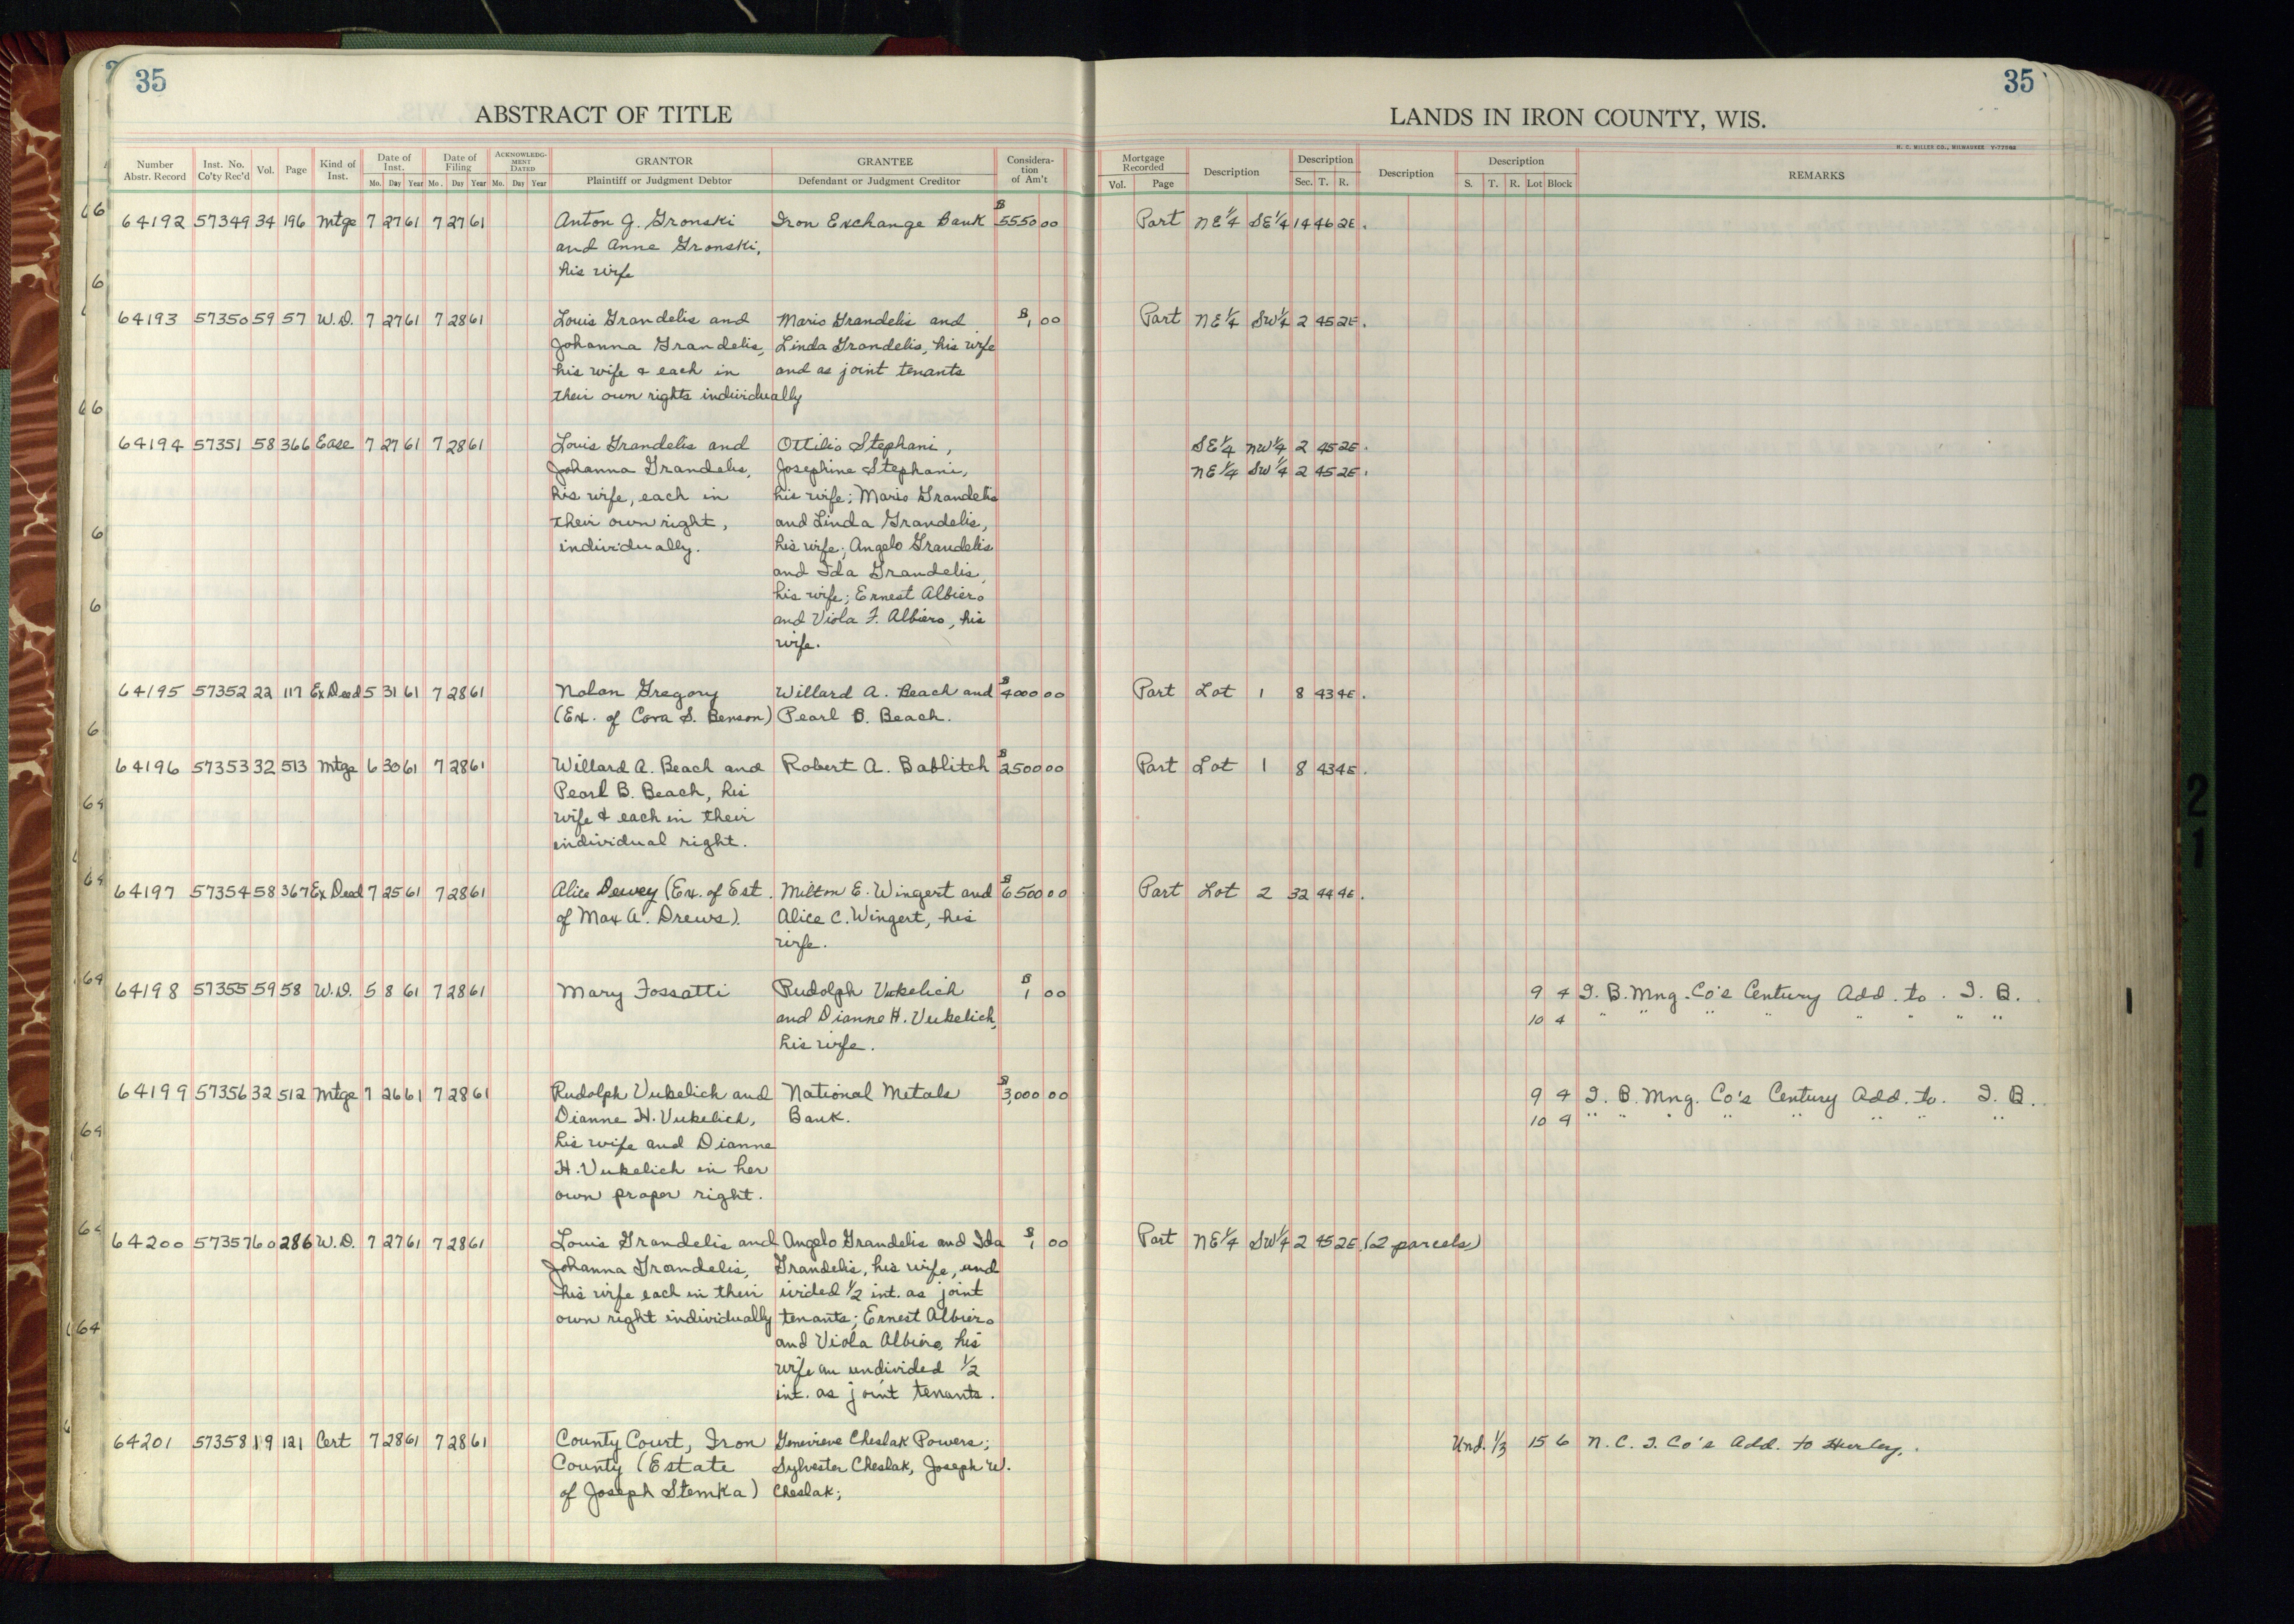 35
35
ABSTRACT OF TITLE
LANDS IN IRON COUNTY, WIS.
H. C. MILLER CO., MILWAUKEE
Number Abstr. Record Inst. No. Co'ty Rec'd Vol. Page Kind of Inst. Date of Inst. Mo. Day Year Date of Filing Mo. Day Year ACKNOWLEDG-MENT DATED Mo. Day Year GRANTOR Plaintiff or Judgment Debtor GRANTEE Defendant or Judgment Creditor Considera-tion of Am't Mortgage Recorded Vol. Page Description Description Sec. T. R. Description Description S. T. R. Lot Block REMARKS
64192 57349 34 196 Mtge 7 27 61 7 27 61 Anton J. Gronski Iron Exchange Bank $5550 00 Part NE¼ SE¼ 14 46 2E.
and Anne Gronski,
his wife
64193 57350 59 57 W.D. 7 27 61 7 28 61 Louis Grandelis and Mario Grandelis and $1 00 Part NE¼ SW¼ 2 45 2E.
Johanna Grandelis, Linda Grandelis, his wife
his wife & each in and as joint tenants
their own rights individually
64194 57351 58 366 Ease 7 27 61 7 28 61 Louis Grandelis and Ottilio Stephani, SE¼ NW¼ 2 45 2E.
Johanna Grandelis, Josephine Stephani, NE¼ SW¼ 2 45 2E.
his wife, each in his wife; Mario Grandelis
their own right, and Linda Grandelis,
individually. his wife; Angelo Grandelis
and Ida Grandelis,
his wife; Ernest Albiero
and Viola F. Albiero, his
wife.
64195 57352 22 117 Ex Deed 5 31 61 7 28 61 Nolan Gregory Willard A. Beach and $4000 00 Part Lot 1 8 43 4E.
(Ex. of Cora S. Benson) Pearl B. Beach.
64196 57353 32 513 Mtge 6 30 61 7 28 61 Willard A. Beach and Robert A. Bablitch $2500 00 Part Lot 1 8 43 4E.
Pearl B. Beach, his
wife & each in their
individual right.
64197 57354 58 367 Ex Deed 7 25 61 7 28 61 Alice Dewey (Ex. of Est. Milton E. Wingert and $6500 00 Part Lot 2 32 44 4E.
of Max A. Drews). Alice C. Wingert, his
wife.
64198 57355 59 58 W.D. 5 8 61 7 28 61 Mary Fossatti Rudolph Vukelich $1 00 9 4 I. B. Mng. Co's Century Add. to I. B.
and Dianne H. Vukelich, 10 4 " " " " " " " "
his wife.
64199 57356 32 512 Mtge 7 26 61 7 28 61 Rudolph Vukelich and National Metals $3,000 00 9 4 I. B. Mng. Co's Century Add. to I. B.
Dianne H. Vukelich, Bank. 10 4 " " " " " " " "
his wife and Dianne
H. Vukelich in her
own proper right.
64200 57357 60 286 W.D. 7 27 61 7 28 61 Louis Grandelis and Angelo Grandelis and Ida $1 00 Part NE¼ SW¼ 2 45 2E. (2 parcels)
Johanna Grandelis, Grandelis, his wife, und
his wife each in their ivided ½ int. as joint
own right individually tenants; Ernest Albiero
and Viola Albiero, his
wife an undivided ½
int. as joint tenants.
64201 57358 19 121 Cert 7 28 61 7 28 61 County Court, Iron Genevieve Cheslak Powers; Und. ⅓ 15 6 N. C. I. Co's Add. to Hurley.
County (Estate Sylvester Cheslak, Joseph W.
of Joseph Stemka) Cheslak;